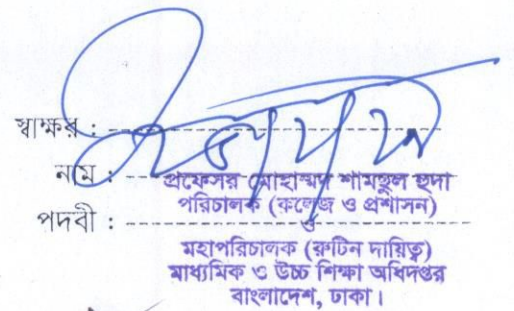 স্বাক্ষর :
নাম :
প্রফেসর মোহাম্মদ শামছুল হুদা
পরিচালক (কলেজ ও প্রশাসন)
পদবী :
ও
মহাপরিচালক (রুটিন দায়িত্ব)
মাধ্যমিক ও উচ্চ শিক্ষা অধিদপ্তর
বাংলাদেশ, ঢাকা।